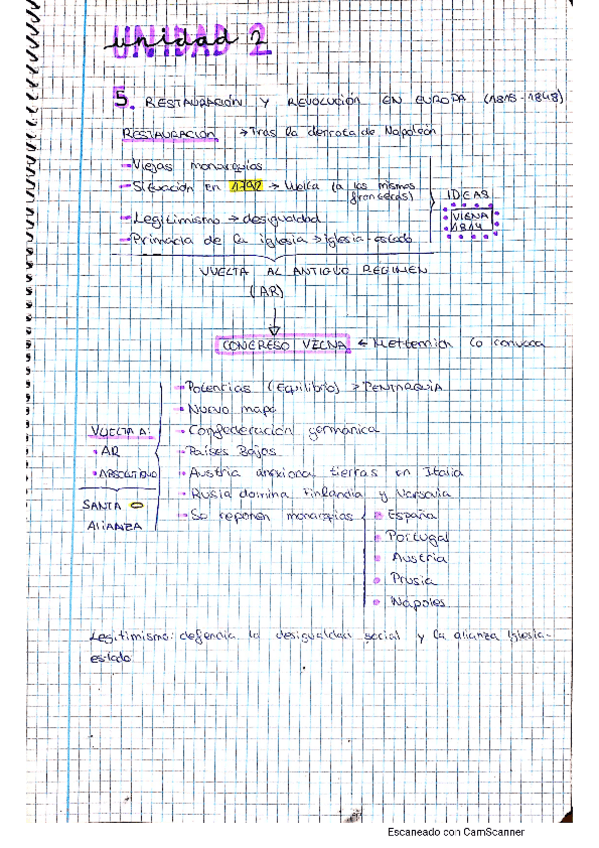 unidad 2
UNIDAD 2
5. RESTAURACIÓN Y REVOLUCIÓN EN EUROPA (1815-1848)
RESTAURACIÓN → Tras la derrota de Napoleón
- Viejas monarquías
- Situación en 1792 → Vuelta (a las mismas fronteras)
- Legitimismo → desigualdad
- Primacía de la iglesia → iglesia-estado
IDEAS
VIENA
1814
VUELTA AL ANTIGUO RÉGIMEN
(AR)
CONGRESO VIENA ← Metternich lo convoca
- Potencias (Equilibrio) → PENTARQUÍA
- Nuevo mapa
- Confederación germánica
- Países Bajos
- Austria anexiona tierras en Italia
- Rusia domina Finlandia y Varsovia
- Se reponen monarquías
España
Portugal
Austria
Prusia
Nápoles
VUELTA A:
• AR
• ABSOLUTISMO
SANTA
ALIANZA
Legitimismo: defendía la desigualdad social y la alianza Iglesia-
estado
Escaneado con CamScanner